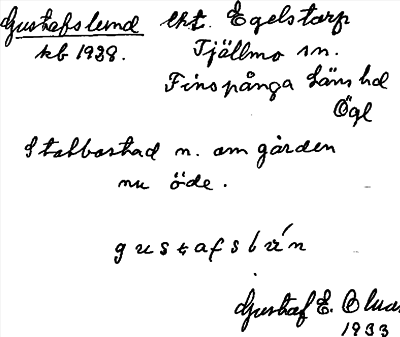 Gustafslund lht. Egelstorp
kb 1938. Tjällmo sn.
Finspånga läns hd
Ögl
Statbostad n. om gården
nu öde.
gustafslún
Gustaf E.
1933